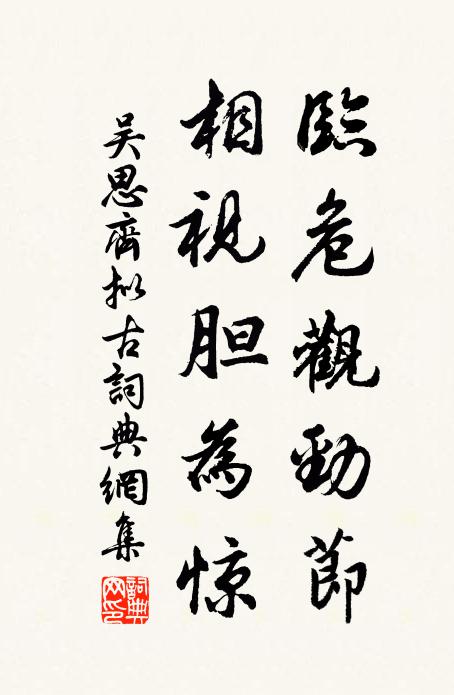 臨危觀勁節
相視胆為惊
吴思齊拟古詞典網集
詞典网印